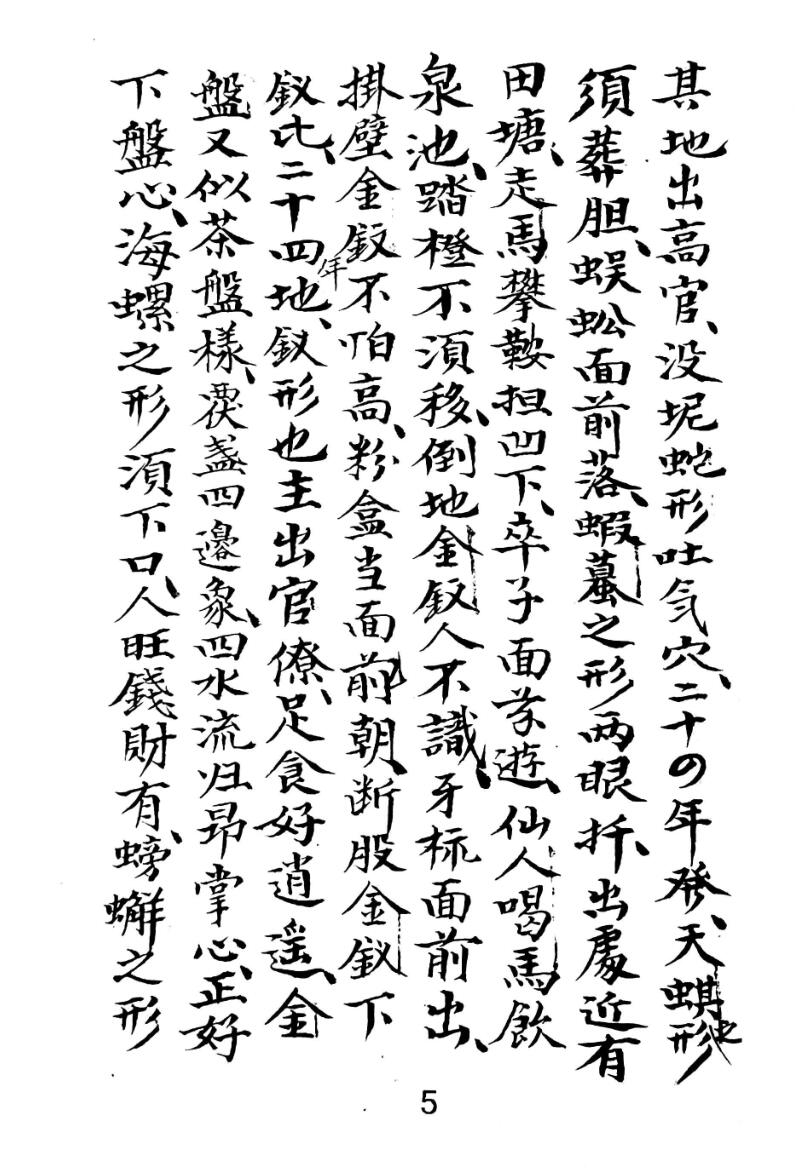 其地出高官、没坭蛇形吐气穴、二十四年發、天蜞形之
須葬胆、蜈蚣面前落、蝦蟇之形两眼扦、出處近有
田塘、走馬攀鞍担凹下、卒子面前遊、仙人喝馬飲
泉池、踏橙不須移、倒地金釵人不識、牙梳面前出、
掛壁金釵不怕高、粉盒当面前朝、断股金釵下
釵比、二十四年地、釵形也主出官僚、足食好逍遥、金
盤又似茶盤樣、盞四邊象、四水流归昂掌心、正好
下盤心、海螺之形須下口、人旺錢財有、螃蠏之形
5